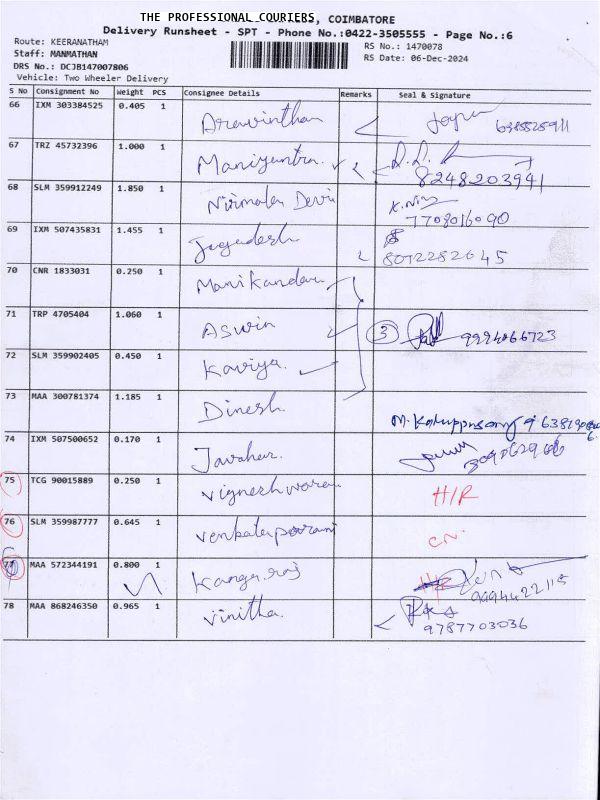 THE PROFESSIONAL COURIERS, COIMBATORE
Delivery Runsheet - SPT - Phone No.:0422-3505555 - Page No.:6
Route: KEERANATHAM
RS No.: 1470078
Staff: MANMATHAN
RS Date: 06-Dec-2024
DRS No.: DCJB147007806
Vehicle: Two Wheeler Delivery
S No Consignment No Weight PCS Consignee Details Remarks Seal & Signature
66 IXM 303384525 0.405 1 Aravinthan
67 TRZ 45732396 1.000 1
8248203941
68 SLM 359912249 1.850 1 Nirmala Devi
7708016090
69 IXM 507435831 1.455 1 Jegadesh 8072282645
70 CNR 1833031 0.250 1 Manikandan
71 TRP 4705404 1.060 1 Aswin 3
72 SLM 359902405 0.450 1 Kaviya.
73 MAA 300781374 1.185 1 Dinesh
74 IXM 507500652 0.170 1 Javahar.
75 TCG 90015889 0.250 1 Vigneshwaran H/R
76 SLM 359987777 0.645 1 CN.
77 MAA 572344191 0.800 1 Kangaraj 9994422115
78 MAA 868246350 0.965 1 Vinitha.
9787703036